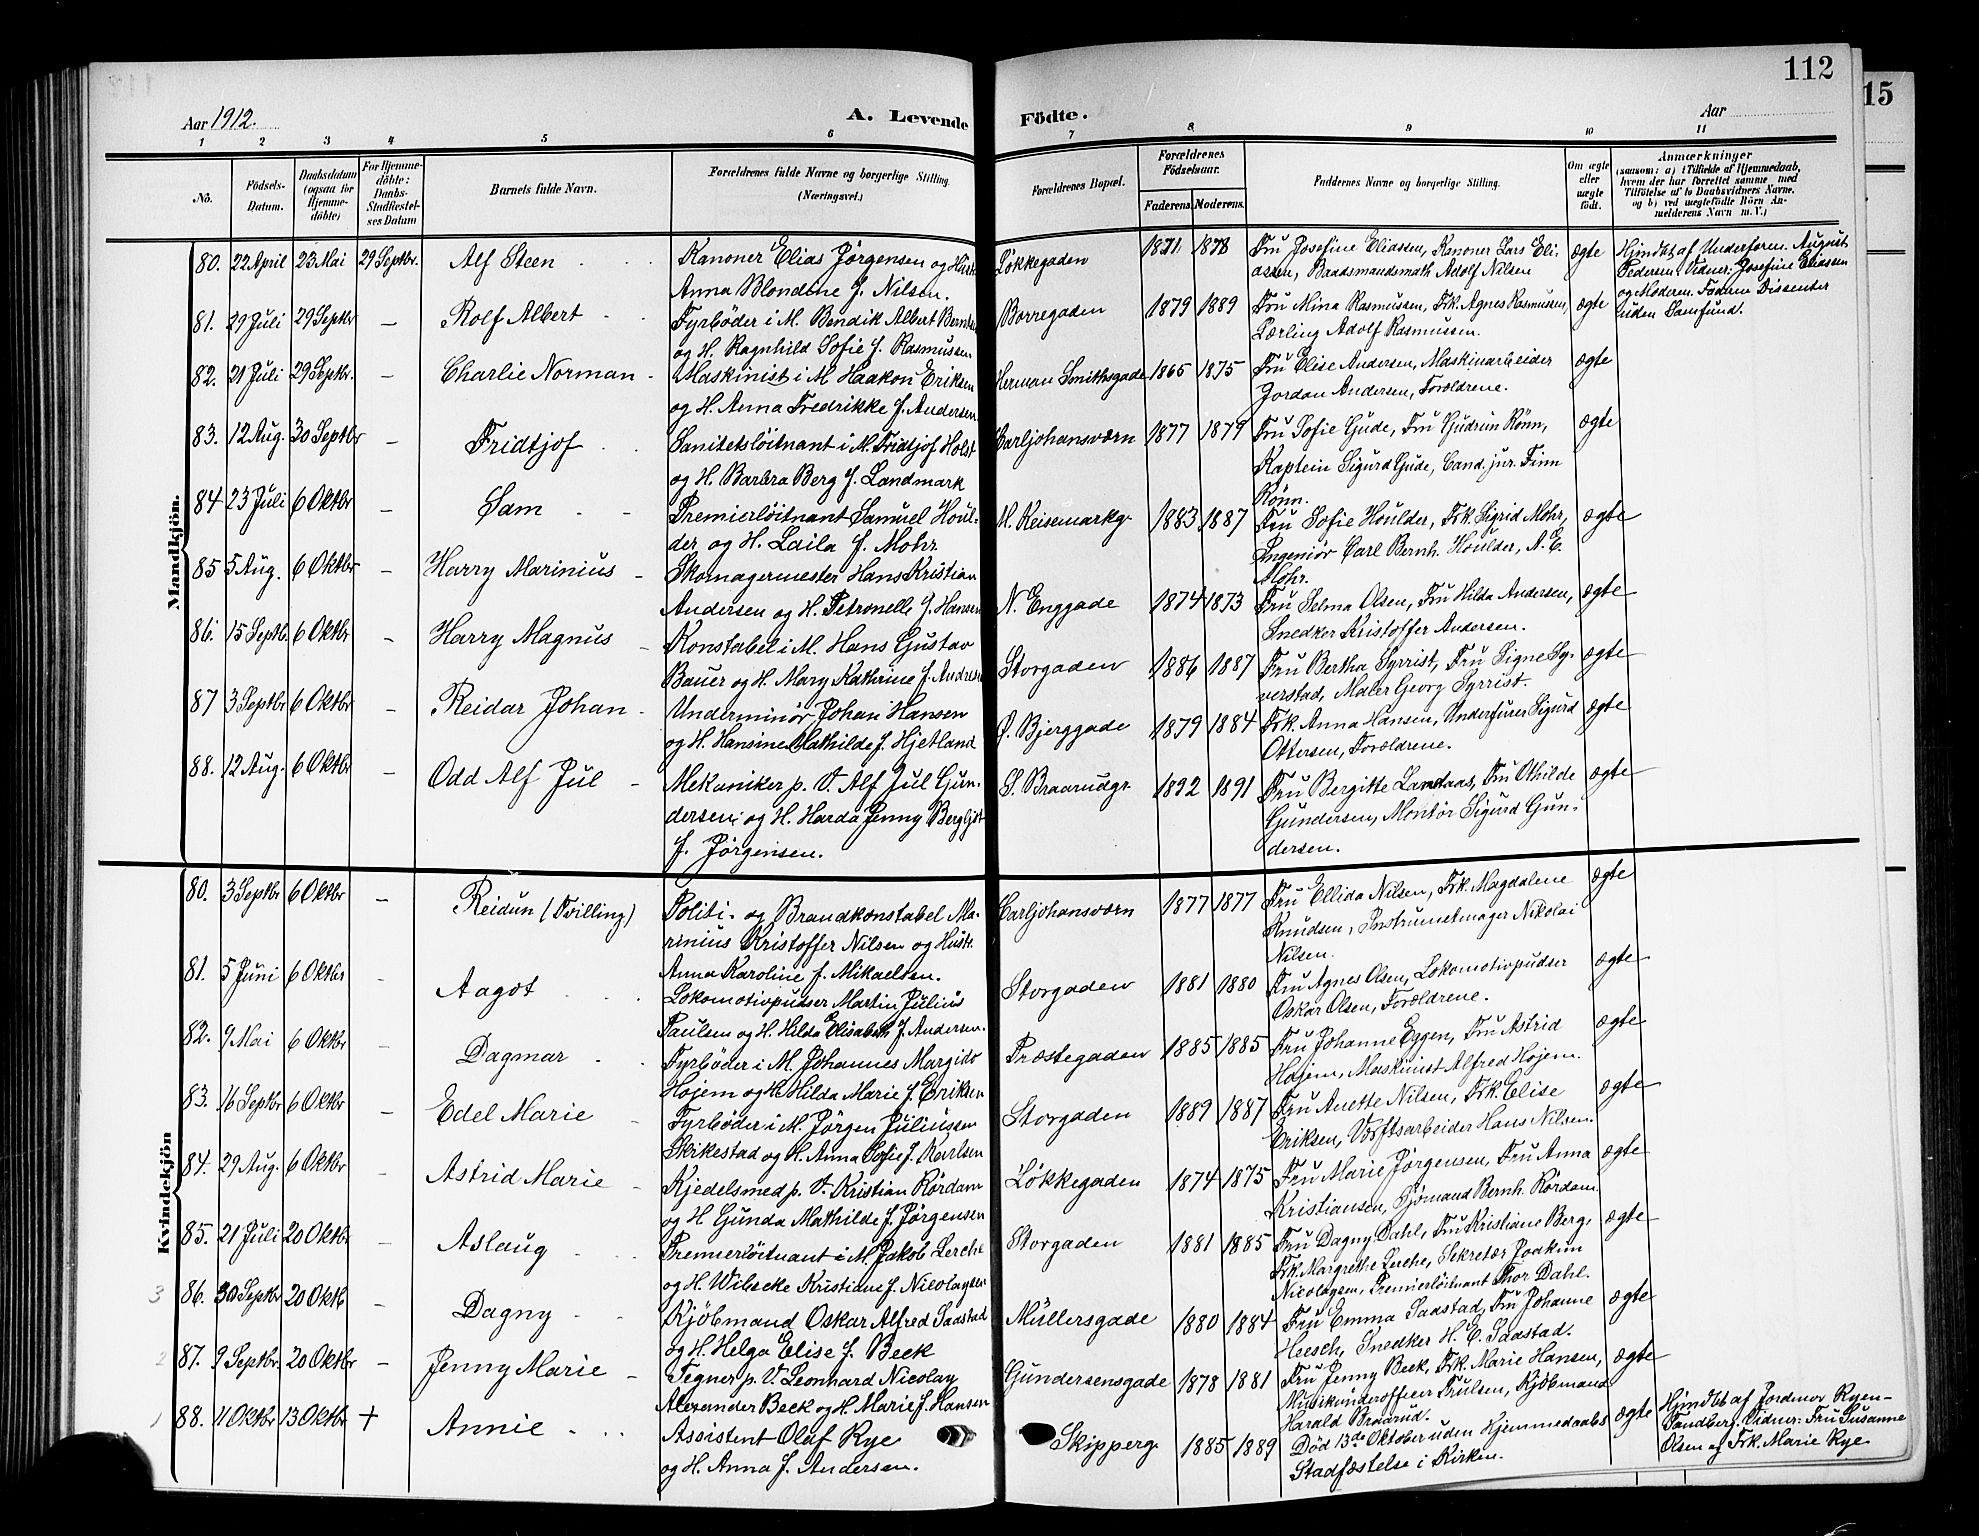 112
15
Aar 1912.
A. Levende Födte.
Aar
1 2 3 4 5 6 7 8 9 10 11
No.
Födsels-Datum.
Daabsdatum (ogsaa for Hjemmedöbte)
For Hjemmedöbte: Daabs-Stadfæstelses Datum
Barnets fulde Navn.
Forældrenes fulde Navne og borgerlige Stilling. (Næringsvei.)
Forældrenes Bopæl.
Forældrenes Födselsaar.
Faderens. Moderens.
Faddernes Navne og borgerlige Stilling.
Om ægte eller uægte født.
Anmærkninger
(saasom: a) i Tilfælde af Hjemmedaab,
hvem der har forrettet samme med
Tilføielse af to Daabsvidners Navne,
og b) ved uægtefødte Börn An-
melderens Navn m. V.)
Mandkjön.
80. 22 April 23 Mai 29 Septbr. Alf Steen
Kanoner Elias Jörgensen og Hustr
Anna Blondine f. Nilsen.
Løkkegaden 1871 1878
Fru Josefine Eliassen, Kanoner Lars Eli-
assen, Baadsmandsmath Adolf Nilsen
ægte
Hjmdbt af Underform. August
Pedersen. Vidner: Josefine Eliassen
og Moderen. Faderen Dissenter
uden Samfund.
81. 29 Juli 29 Septbr — Rolf Albert
Fyrbøder i M. Bendik Albert Berntsen
og H. Ragnhild Sofie f. Rasmussen
Borregaden 1879 1889
Fru Mina Rasmussen, Frk. Agnes Rasmussen,
Lærling Adolf Rasmussen.
ægte
82. 21 Juli 29 Septbr. — Charlie Norman
Maskinist i M Haakon Eriksen
og H. Anna Fredrikke f. Andersen
Herman Smithsgade 1865 1875
Fru Elise Andersen, Maskinarbeider
Jordan Andersen, Forældrene.
ægte
83. 12 Aug. 30 Septbr — Fridtjof
Sanitetsløitnant i M. Fridtjof Holst
og H. Barbra Berg f. Landmark
Carljohansværn 1877 1879
Fru Sofie Gude, Fru Gudrun Rönn,
Kaptein Sigurd Gude, Cand. jur. Finn
Rönn.
ægte
84 23 Juli 6 Oktbr — Sam
Premierløitnant Samuel Houl-
der og H. Laila f. Mohr
M. Keisemarkg. 1883 1887
Fru Sofie Houlder, Frk. Sigrid Mohr,
Ingeniør Carl Bernh. Houlder, N. E.
Mohr.
ægte
85 5 Aug. 6 Oktbr — Harry Marinius
Skomagermester Hans Kristian
Andersen og H. Petronelle f. Hansen
N. Enggade 1874 1873
Fru Selma Olsen, Fru Hilda Andersen,
Snedker Kristoffer Andersen.
ægte
86. 15 Septb. 6 Oktbr — Harry Magnus
Konstabel i M. Hans Gustav
Bauer og H. Mary Kathrine f. Andresen
Storgaden 1886 1887
Fru Bertha Syrrist, Fru Signe Sy-
verstad, Maler Georg Syrrist.
ægte
87 3 Septbr 6 Oktbr — Reidar Johan
Underminör Johan Hansen
og H. Hansine Mathilde f. Hjetland
Ø. Bjerggade 1879 1884
Frk. Anna Hansen, Underfurer Sigurd
Ottersen, Forældrene.
ægte
88. 12 Aug. 6 Oktbr — Odd Alf Jul
Mekaniker p. V. Alf Jul Gun-
dersen og H. Harda Jenny Bergljot
f. Jörgensen.
S. Braarudgr. 1892 1891
Fru Bergitte Landaas, Fru Othilde
Gundersen, Montör Sigurd Gun-
dersen.
ægte
Kvindekjön
80. 3 Septbr 6 Oktbr — Reidun (Tvilling)
Politi- og Brandkonstabel Ma-
rinius Kristoffer Nilsen og Hustr.
Anna Karoline f. Mikaelsen.
Carljohansværn 1877 1877
Fru Ellida Nilsen, Frk. Magdalene
Knudsen, Instrumetmager Nikolai
Nilsen.
ægte
81. 5 Juni 6 Oktbr — Aagot
Lokomotivpudser Martin Julius
Paulsen og H. Hilda Elisabeth f. Andersen.
Storgaden 1881 1880
Fru Agnes Olsen, Lokomotivpudser
Oskar Olsen, Forældrene.
ægte
82. 9 Mai 6 Oktbr — Dagmar
Fyrbøder i M. Johannes Margido
Hojem og H. Hilda Marie f. Eriksen
Præstegaden 1885 1885
Fru Johanne Eggen, Fru Astrid
Hojem, Maskinist Alfred Hojem.
ægte
83. 16 Septbr 6 Oktbr — Edel Marie
Fyrbøder i M. Jörgen Juliussen
Skikestad og H. Anna Sofie f. Karlsen
Storgaden 1889 1887
Fru Anette Nilsen, Frk. Elise
Eriksen, Værftsarbeider Hans Nilsen.
ægte
84. 29 Aug. 6 Oktbr — Astrid Marie
Kjedelsmed p. V. Kristian Rördam
og H Gunda Mathilde f. Jörgensen
Løkkegaden 1874 1875
Fru Marie Jörgensen, Fru Anna
Kristiansen, Sjömand Bernh. Rördam.
ægte
85. 21 Juli 20 Oktbr — Aslaug
Premierløitnant i M. Jakob Lerche
og H. Wibecke Kristiane f. Nicolaysen
Storgaden 1881 1885
Fru Dagny Dahl, Fru Kristiane Berg,
Frk. Margrethe Lerche, Sekretær Joakim
Nicolaysen, Premierløitnant Thor Dahl.
ægte
3 86. 30 Septbr 20 Oktb — Dagny
Kjöbmand Oskar Alfred Saastad
og H. Helga Elise f. Beck
Müllersgade 1880 1884
Fru Emma Saastad, Fru Johanne
Heesch, Snedker H. C. Saastad.
ægte
2 87. 9 Septbr. 20 Oktbr — Jenny Marie
Tegner p. V. Leonhard Nicolay
Alexander Beck og H. Marie f. Hansen
Gundersensgade 1878 1881
Fru Jenny Beck, Frk. Marie Hansen,
Musikunderofficer Trulsen, Kjöbmand
Harald Braarud.
ægte
1 88. 11 Oktbr 13 Oktbr + Annie
Assistent Olaf Rye
og H. Anna f. Andersen.
Skipperg. 1885 1889
Død 13de Oktober uden Hjemmedaabs
Stadfæstelse i Kirken.
ægte
Hjmdbt af Jordmor Ruen-
Tandberg. Vidner: Fru Susanne
Olsen og Frk. Marie Rye